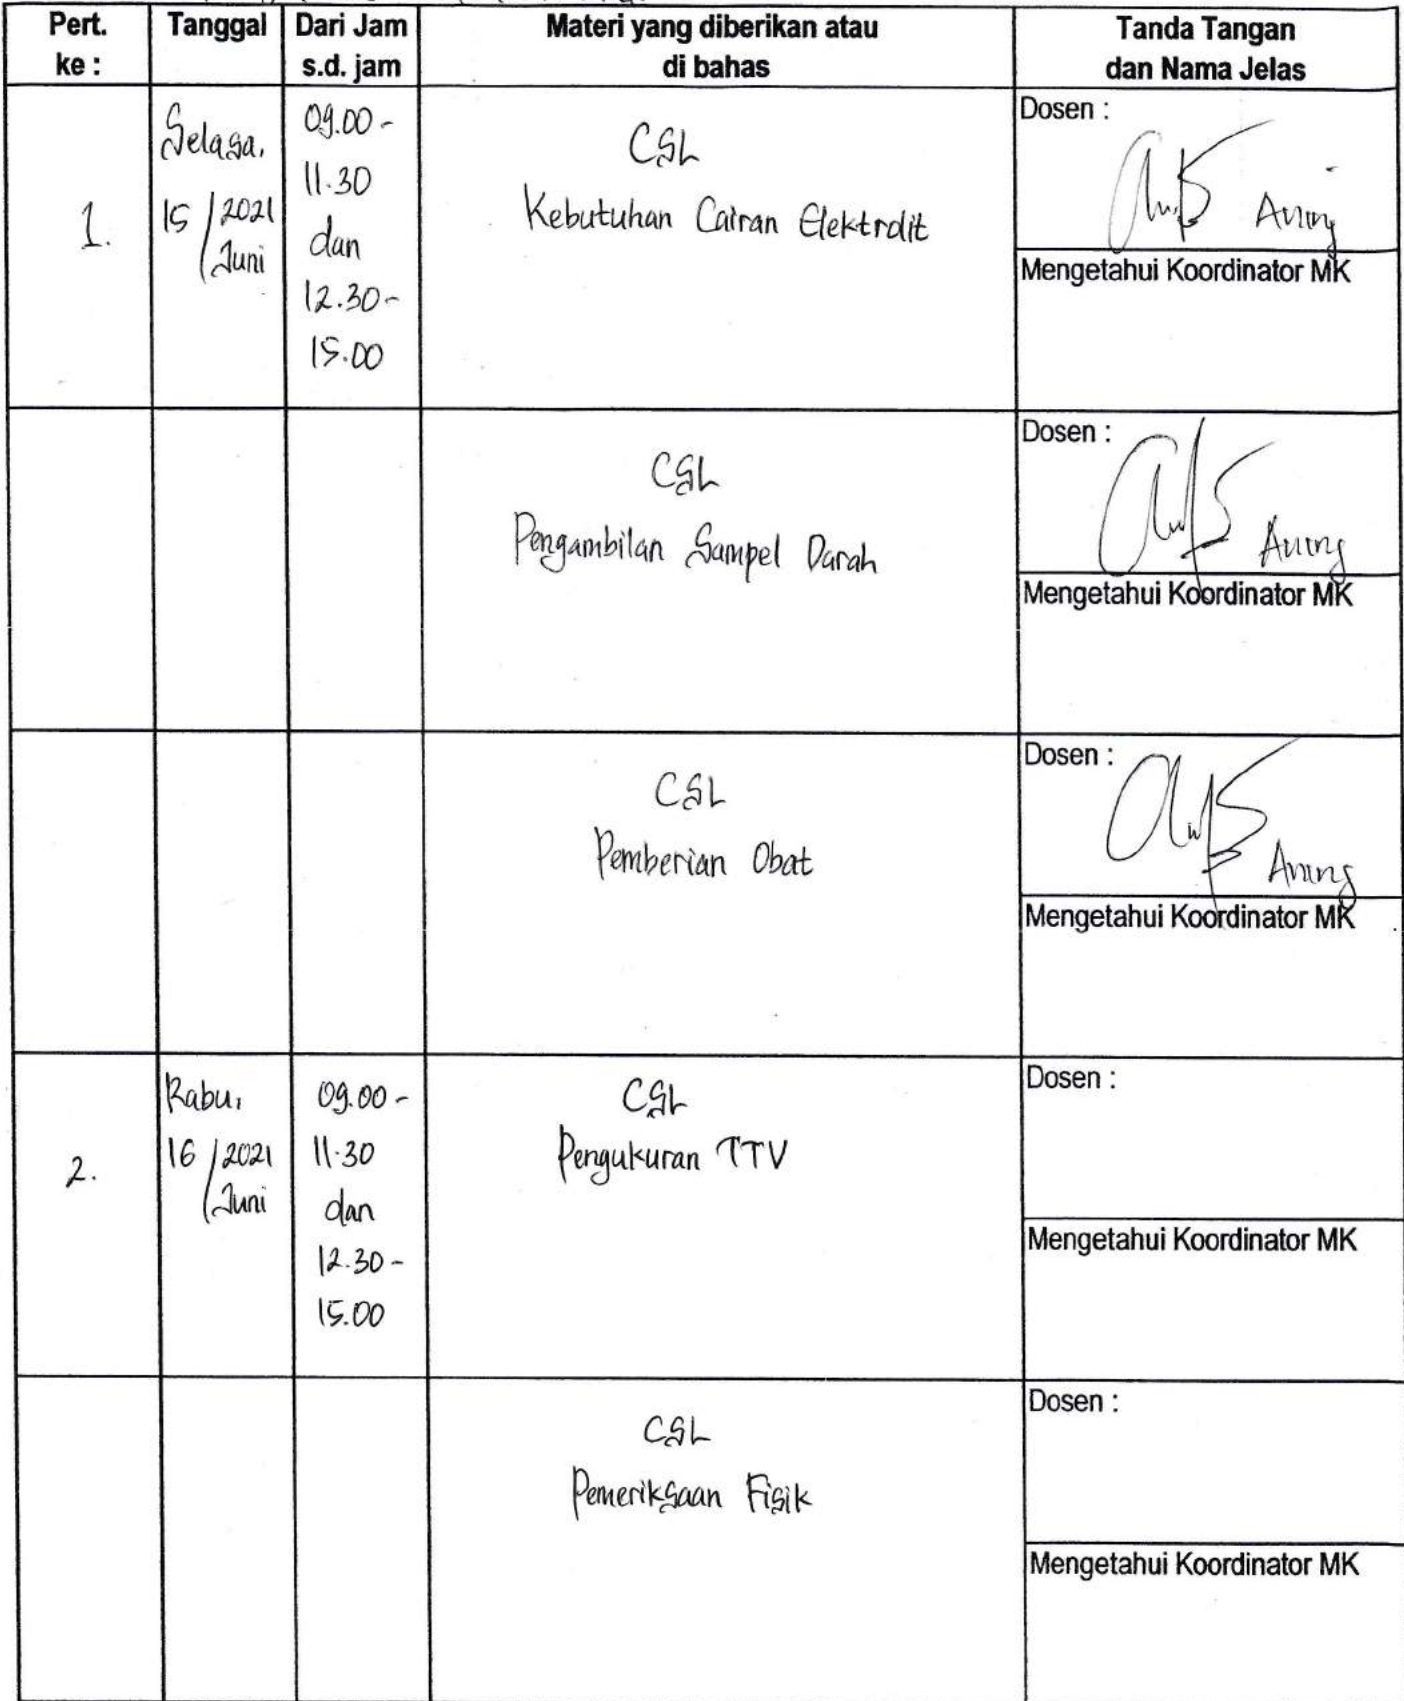 Pert. ke :
Tanggal
Dari Jam s.d. jam
Materi yang diberikan atau di bahas
Tanda Tangan dan Nama Jelas
1.
Selasa,
15 / 2021
Juni
09.00 -
11.30
dan
12.30 -
15.00
CSL
Kebutuhan Cairan Elektrolit
Dosen :
Aning
Mengetahui Koordinator MK
CSL
Pengambilan Sampel Darah
Dosen :
Aning
Mengetahui Koordinator MK
CSL
Pemberian Obat
Dosen :
Aning
Mengetahui Koordinator MK
2.
Rabu,
16 / 2021
Juni
09.00 -
11.30
dan
12.30 -
15.00
CSL
Pengukuran TTV
Dosen :
Mengetahui Koordinator MK
CSL
Pemeriksaan Fisik
Dosen :
Mengetahui Koordinator MK